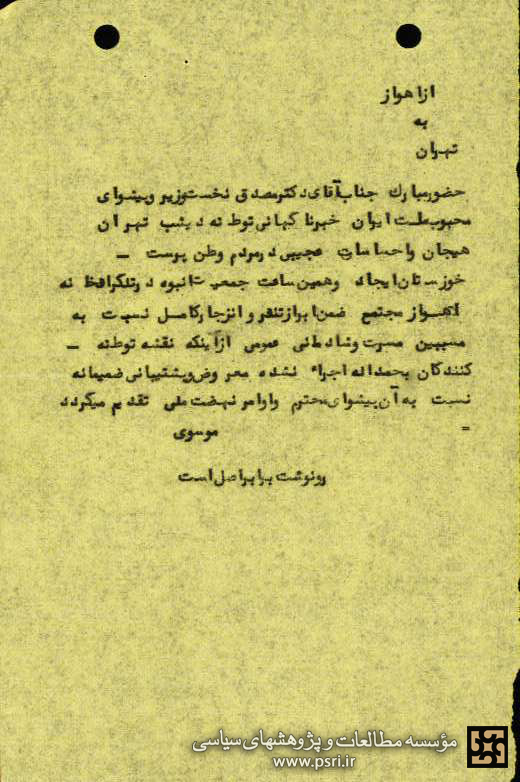 ازاهواز
به
تهران
حضورمبارك جناب‌آقای‌دکترمصدق نخست‌وزیر وپیشوای
محبوب‌ملت ایران خبرناگهانی‌توطئه دیشب تهران
هیجان واحساسات عجیبی‌درمردم وطن پرست –
خوزستان‌ایجاد وهمین‌ساعت جمعیت‌انبوه درتلگرافخانه
اهواز مجتمع ضمن‌ابرازتنفر و انزجارکامل نسبت به
مسببین مسرت وشادمانی عمومی ازاینکه نقشه توطئه –
کنندگان بحمداله اجراء نشده معروض‌وپشتیبانی‌صمیمانه
نسبت به‌آن‌پیشوای‌محترم واوامر نهضت‌ملی تقدیم میگردد
=
موسوی
رونوشت برابراصل‌است
مؤسسه مطالعات و پژوهشهای سیاسی
www.psri.ir